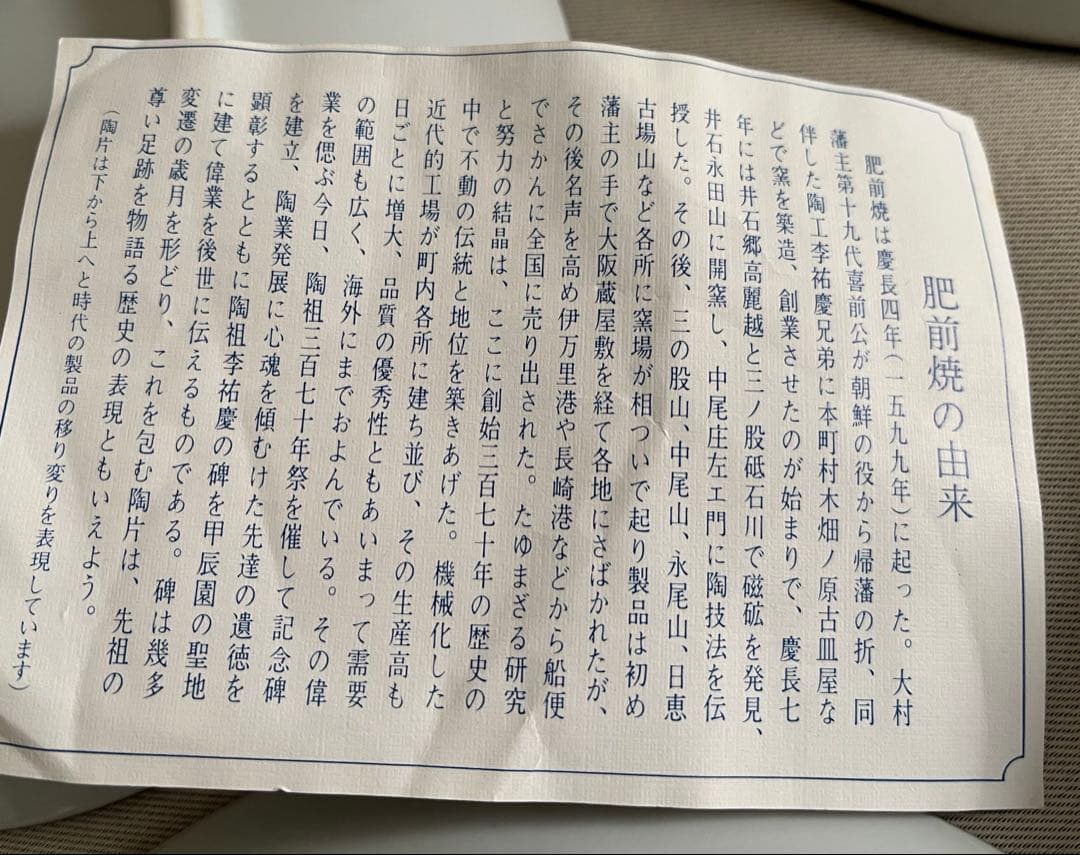 肥前焼の由来
肥前焼は慶長四年(一五九九年)に起った。大村
藩主第十九代喜前公が朝鮮の役から帰藩の折、同
伴した陶工李祐慶兄弟に本町村木畑ノ原古皿屋な
どで窯を築造、創業させたのが始まりで、慶長七
年には井石郷高麗越と三ノ股砥石川で磁砿を発見、
井石永田山に開窯し、中尾庄左エ門に陶技法を伝
授した。その後、三の股山、中尾山、永尾山、日恵
古場山など各所に窯場が相ついで起り製品は初め
藩主の手で大阪蔵屋敷を経て各地にさばかれたが、
その後名声を高め伊万里港や長崎港などから船便
でさかんに全国に売り出された。たゆまざる研究
と努力の結晶は、ここに創始三百七十年の歴史の
中で不動の伝統と地位を築きあげた。機械化した
近代的工場が町内各所に建ち並び、その生産高も
日ごとに増大、品質の優秀性ともあいまって需要
の範囲も広く、海外にまでおよんでいる。その偉
業を偲ぶ今日、陶祖三百七十年祭を催して記念碑
を建立、陶業発展に心魂を傾むけた先達の遺徳を
顕彰するとともに陶祖李祐慶の碑を甲辰園の聖地
に建て偉業を後世に伝えるものである。碑は幾多
変遷の歳月を形どり、これを包む陶片は、先祖の
尊い足跡を物語る歴史の表現ともいえよう。
(陶片は下から上へと時代の製品の移り変りを表現しています)